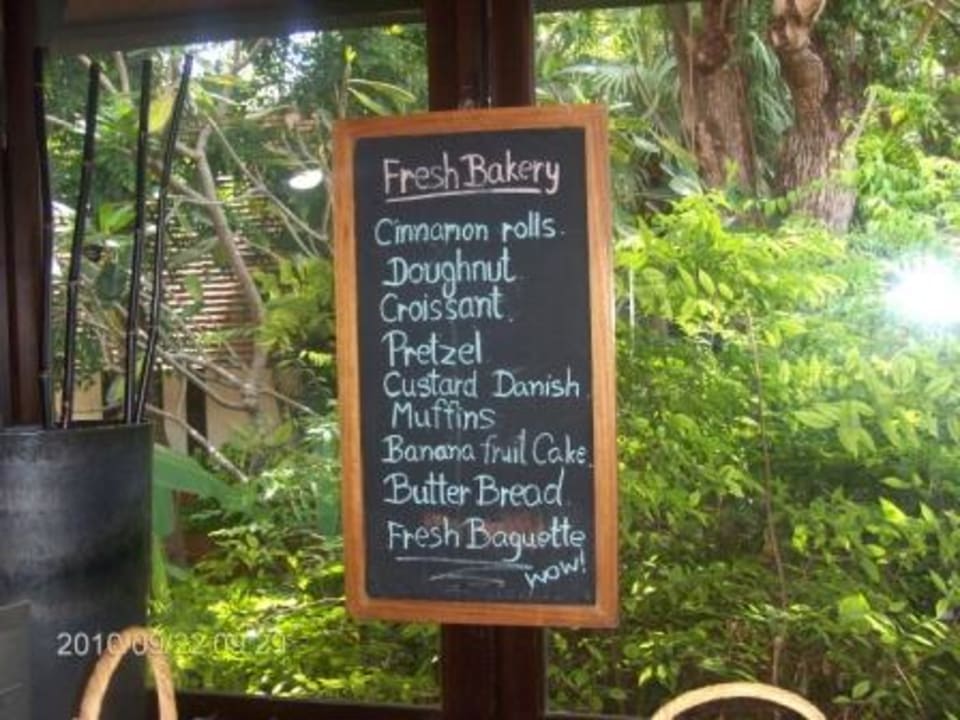 Fresh Bakery
Cinnamon rolls.
Doughnut
Croissant.
Pretzel
Custard Danish
Muffins
Banana fruit Cake.
Butter Bread
Fresh Baguette
WOW!
2010/09/22 09:29